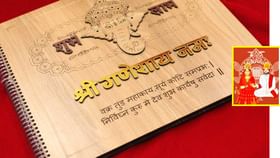 शुभ लाभ
श्री गणेशाय नमः
वक्र तुन्ड महाकाय सूर्य कोटि समप्रभः ।
निर्विघ्नं कुरु मे देव शुभ कार्येषु सर्वदा ॥